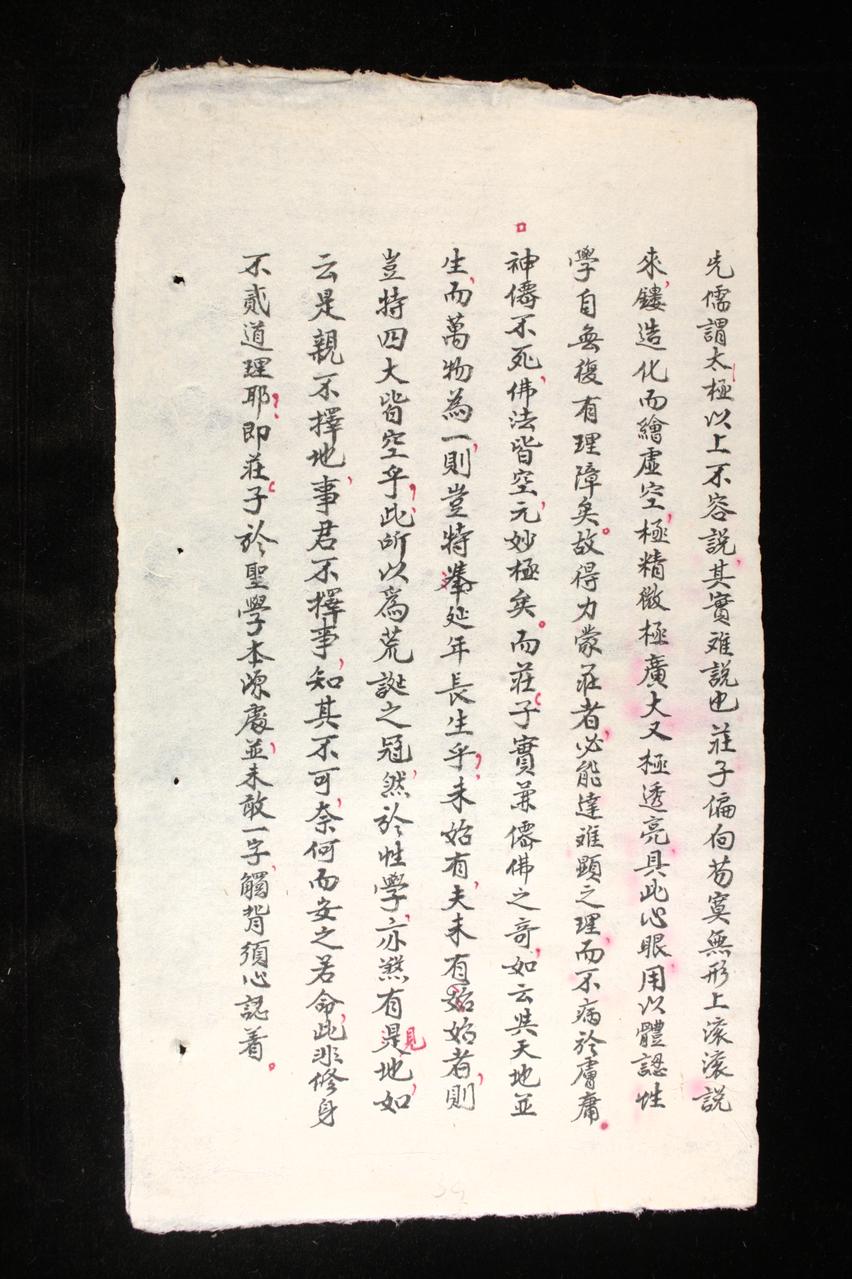 先儒謂太極以上不容說其實难說也莊子偏向芴寞無形上滾滾說
來鏤造化而繪虛空極精微極廣大又極透亮具此心眼用以體認性
學自無復有理障矣故得力蒙莊者必能達难顯之理而不病於膚庸
神僊不死佛法皆空元妙極矣而莊子實兼僊佛之奇如云與天地並
生而萬物為一則豈特延年長生乎未始有夫未有始始者則
豈特四大皆空乎此所以為荒誕之冠然於性學亦煞有見地如
云是親不擇地事君不擇事知其不可奈何而安之若命此非修身
不貳道理耶即莊子於聖學本源處並未敢一字觸背須心認着